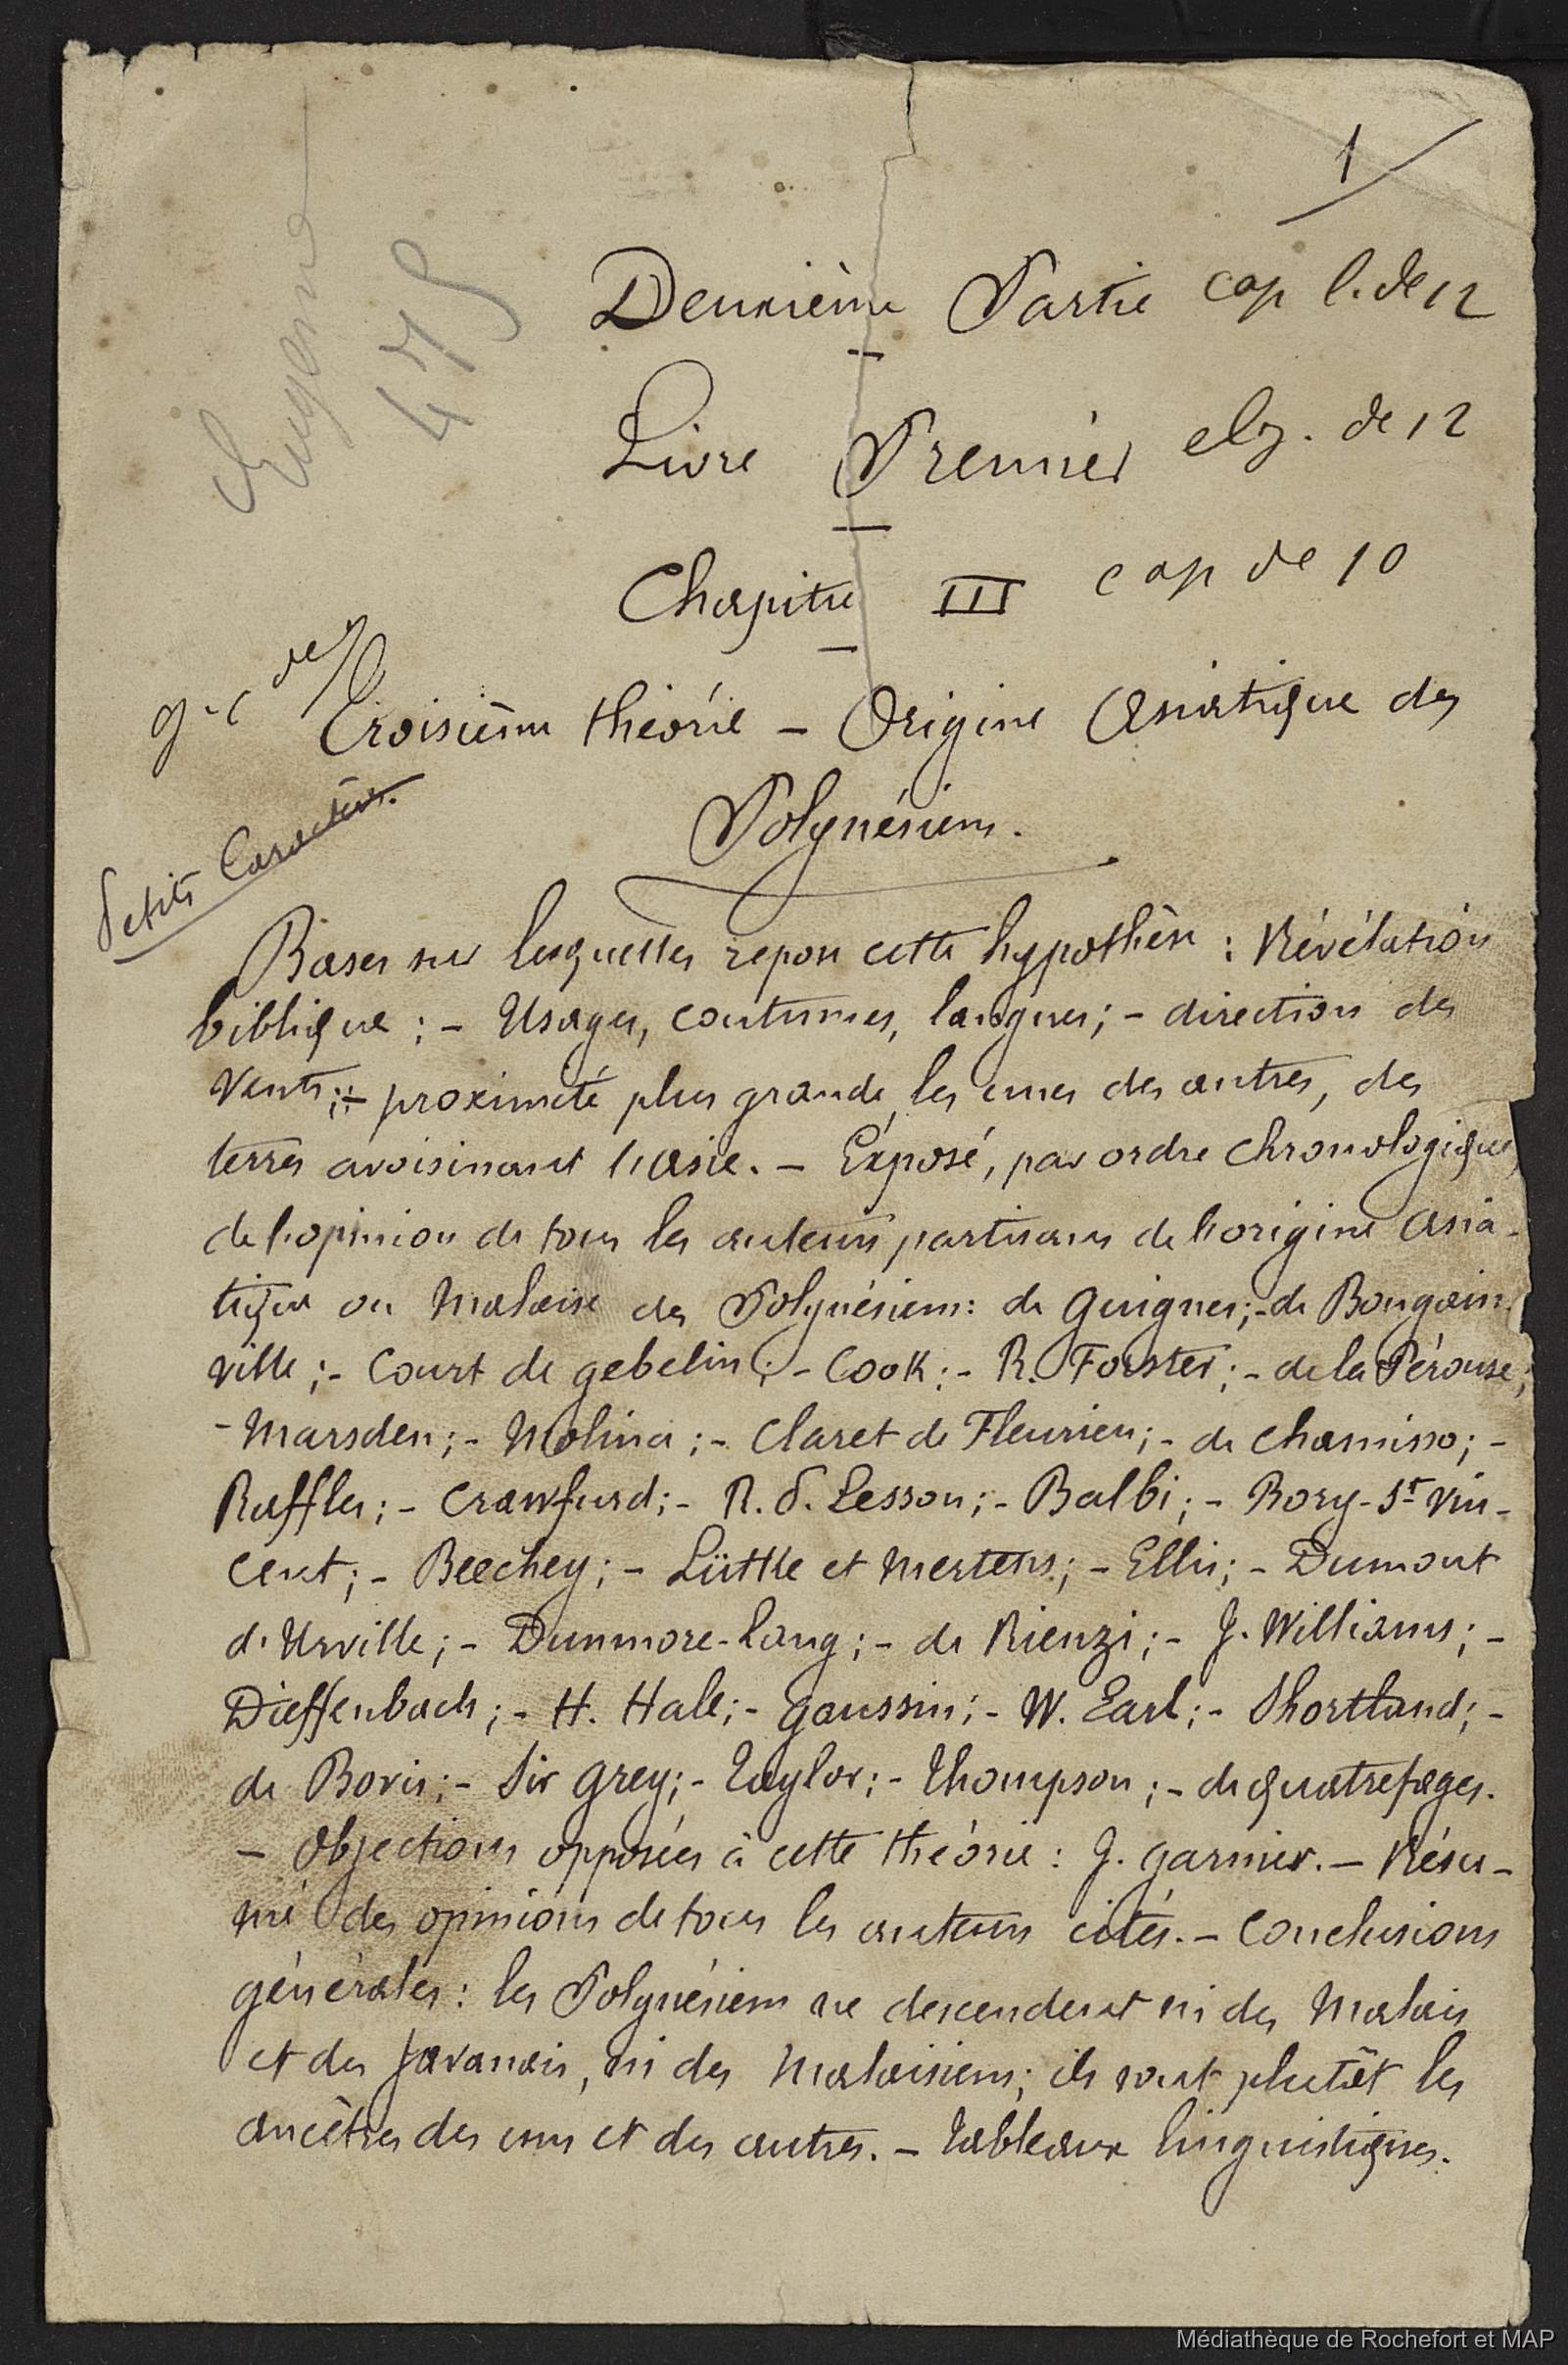 1
Eugène
475
Deuxième Partie cap l. de 12
Livre Premier elz. de 12
Chapitre III cap de 10
g.c de 7
Troisième théorie – Origine Asiatique des
Polynésiens.
Petits Caractères.
Bases sur lesquelles repose cette hypothèse : Révélation
biblique ; – Usages, coutumes, langues ; – direction des
vents ; – proximité plus grande, les unes des autres, des
terres avoisinant l'asie. – Exposé, par ordre chronologique,
de l'opinion de tous les auteurs partisans de l'origine asia-
tique ou malaise des Polynésiens : de Guignes ; – de Bougain-
ville ; – Court de gebelin ; – Cook ; – R. Forster ; – de la Pérouse ;
– Marsden ; – Molina ; – Claret de Fleurieu ; – de Chamisso ; –
Raffles ; – Crawfurd ; – R. P. Lesson ; – Balbi ; – Bory-St Vin-
cent ; – Beechey ; – Lütke et Mertens ; – Ellis ; – Dumont
d'Urville ; – Dunmore-Lang ; – de Rienzi ; – J. Williams ; –
Dieffenbach ; – H. Hale ; – Gaussin ; – W. Earl ; – Shortland ; –
de Bovis ; – Sir Grey ; – Taylor ; – Thompson ; – de quatrefages.
– Objections opposées à cette théorie : J. Garnier. – Résu-
mé des opinions de tous les auteurs cités. – Conclusions
générales : les Polynésiens ne descendent ni des Malais
et des Javanais, ni des Malaisiens ; ils sont plutôt les
ancêtres des uns et des autres. – Tableaux linguistiques.
Médiathèque de Rochefort et MAP